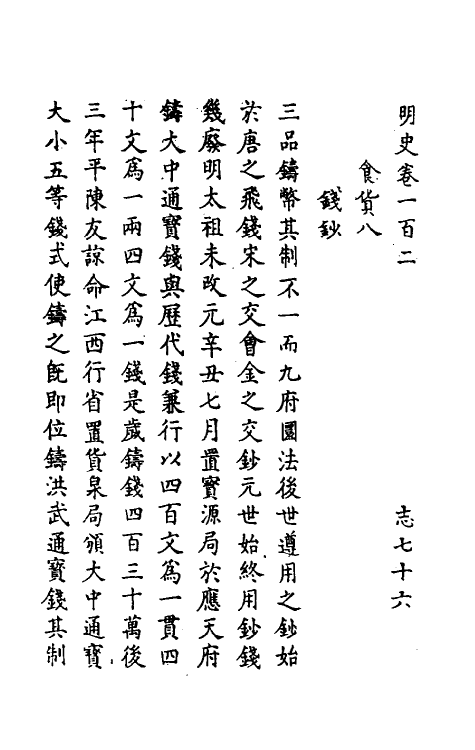 明史卷一百二　志七十六
食貨八
錢鈔
三品鑄幣其制不一而九府圜法後世遵用之鈔始
於唐之飛錢宋之交會金之交鈔元世始終用鈔錢
幾廢明太祖未改元辛丑七月置寳源局於應天府
鑄大中通寳錢與歷代錢兼行以四百文為一貫四
十文為一兩四文為一錢是歲鑄錢四百三十萬後
三年平陳友諒命江西行省置貨泉局頒大中通寳
大小五等錢式使鑄之旣即位鑄洪武通寳錢其制